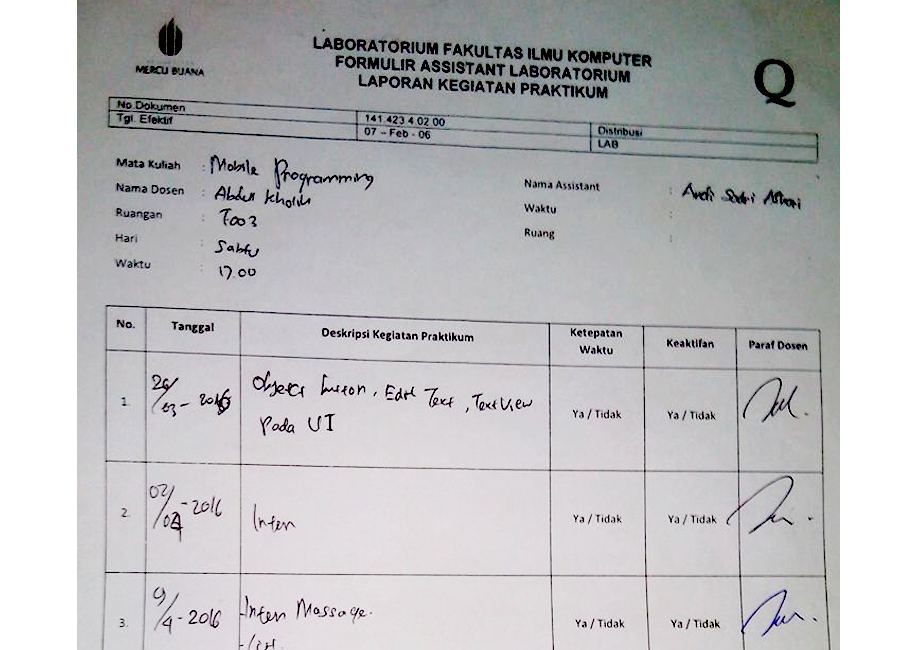 MERCU BUANA
LABORATORIUM FAKULTAS ILMU KOMPUTER
FORMULIR ASSISTANT LABORATORIUM
LAPORAN KEGIATAN PRAKTIKUM
Q
No.Dokumen 141.423.4.02.00 Distribusi
Tgl. Efektif 07 – Feb - 06 LAB
Mata Kuliah : Mobile Programming
Nama Dosen : Abdul Kholik
Ruangan : T003
Hari : Sabtu
Waktu : 17.00
Nama Assistant : Andi
Waktu :
Ruang :
No. Tanggal Deskripsi Kegiatan Praktikum Ketepatan Waktu Keaktifan Paraf Dosen
1. 26/03-2016 Object button, Edit Text, TextView
Pada UI Ya / Tidak Ya / Tidak
2. 02/04-2016 Inten Ya / Tidak Ya / Tidak
3. 9/4-2016 -Inten Massage. Ya / Tidak Ya / Tidak